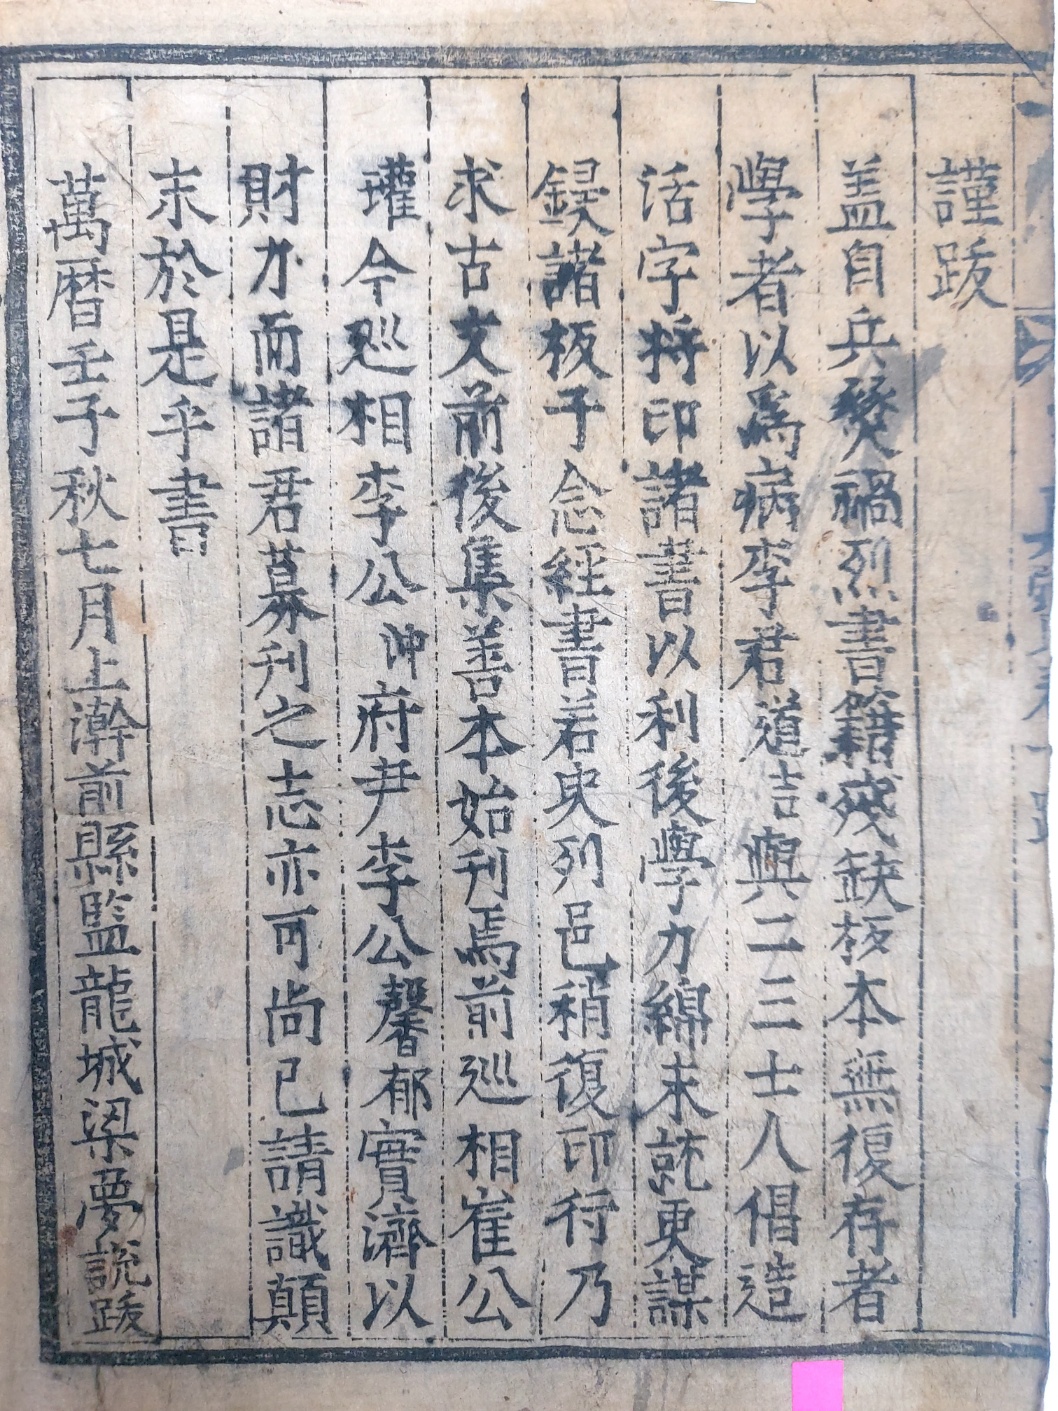 謹跋
盖自兵燹禍烈書籍殘缺板本無復存者
學者以爲病李君道吉與二三士人倡造
活字將印諸書以利後學力綿未就更謀
鋟諸板子念經書若史列邑稍復印行乃
求古文前後集善本始刊焉前巡相崔公
瓘今巡相李公冲府尹李公馨郁實濟以
財力而諸君募刊之志亦可尙已請識顛
末於是乎書
萬曆壬子秋七月上澣前縣監龍城梁夢說跋